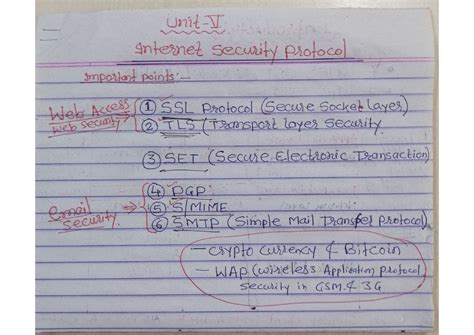 Unit-V
Internet Security Protocol
Important points:-
Web Access
Web Security
① SSL Protocol (Secure Socket Layer)
② TLS (Transport Layer Security
③ SET (Secure Electronic Transaction)
email
Security
④ PGP
⑤ S/MIME
⑥ SMTP (Simple Mail Transfer Protocol)
- Crypto Currency & Bitcoin
- WAP (Wireless Application Protocol
Security in GSM & 3G